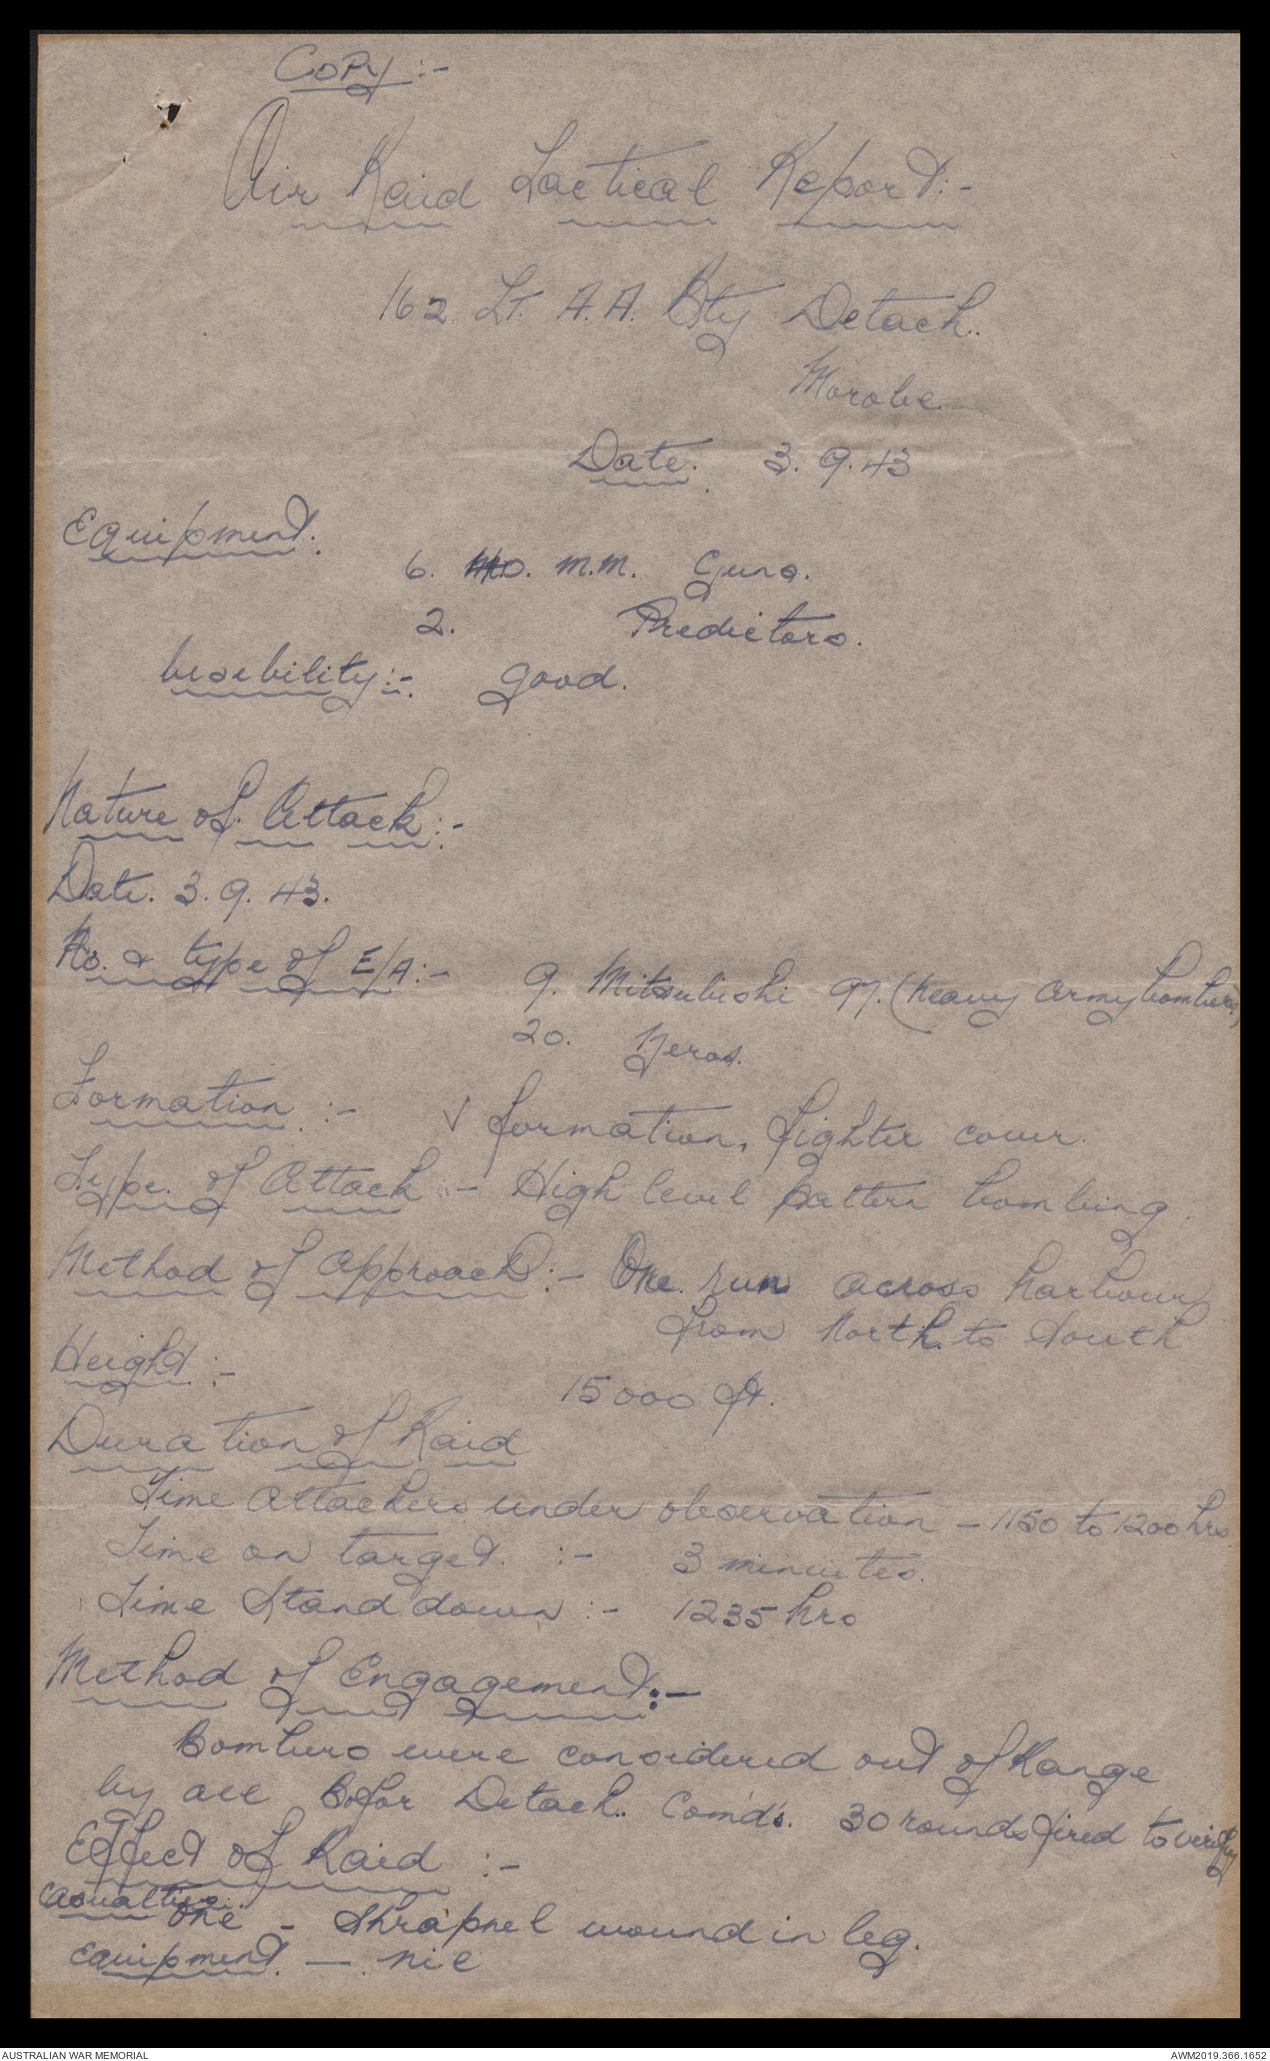 Copy :-
Air Raid Tactical Report :-
162 Lt. A.A. Bty Detach.
Morobe
Date. 3.9.43
Equipment.
6. 40. m.m. Guns.
2. Predictors.
Visebility :- good.
Nature of Attack :-
Date. 3.9.43.
No. & type of E/A :- 9. Mitsubishi 97. (heavy army bombers)
20. Zeros.
Formation :- V formation, fighter cover.
Type of Attack :- High level pattern bombing.
Method of approach :- One run across harbour
from North to South
Height :- 15000 ft.
Duration of Raid
Time attackers under observation - 1150 to 1200 hrs
Time on target :- 3 minuites.
Time Stand down :- 1235 hrs
Method of Engagement :-
Bombers were considered out of Range
by all Bofor Detach. Comds. 30 rounds fired to verify
Effect of Raid :-
Casualties
One - Shrapnel wound in leg.
Equipment. - nil
AUSTRALIAN WAR MEMORIAL AWM2019.366.1652